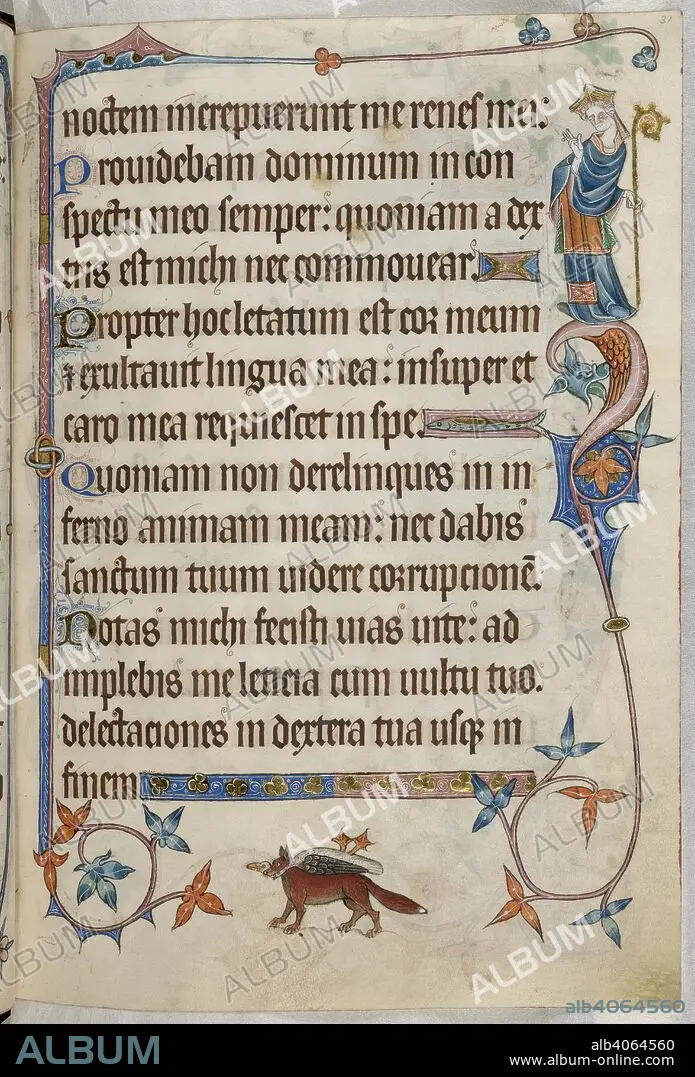 31
noctem increpuerunt me renes mei:
Prouidebam dominum in con
spectu meo semper: quoniam a dex
tris est michi nec commouear.
Propter hoc letatum est cor meum
⁊ exultauit lingua mea: insuper et
caro mea requiescet in spe.
Quoniam non derelinques in in
ferno animam meam: nec dabis
sanctum tuum uidere corrupcionē.
Notas michi fecisti uias uite: ad
implebis me leticia cum uultu tuo.
delectaciones in dextera tua usqꝫ in
finem
alb4064560
ALBUM
alb4064560
www.album-online.com